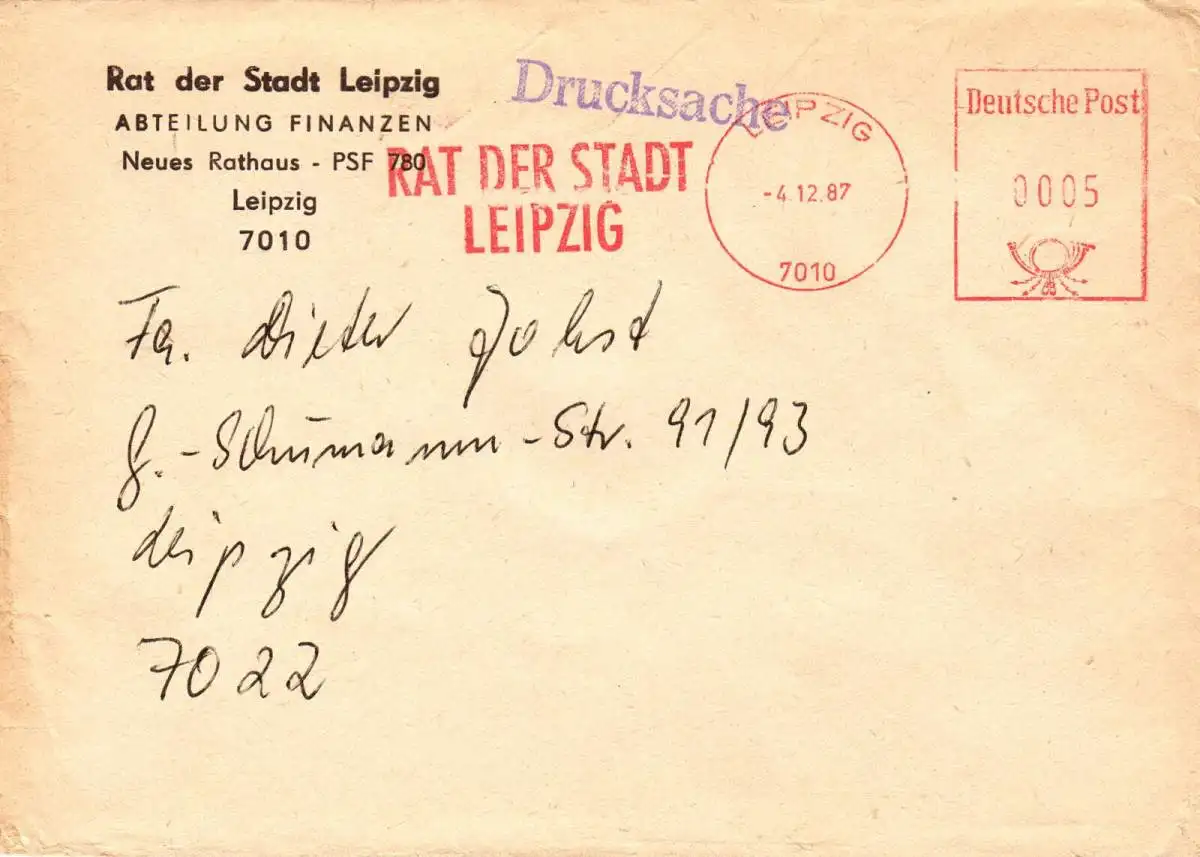 Rat der Stadt Leipzig
ABTEILUNG FINANZEN
Neues Rathaus - PSF 780
Leipzig
7010
Drucksache
RAT DER STADT
LEIPZIG
LEIPZIG
-4.12.87
7010
Deutsche Post
0005
Fa. Dieter Jobst
G.-Schumann-Str. 91/93
Leipzig
7022